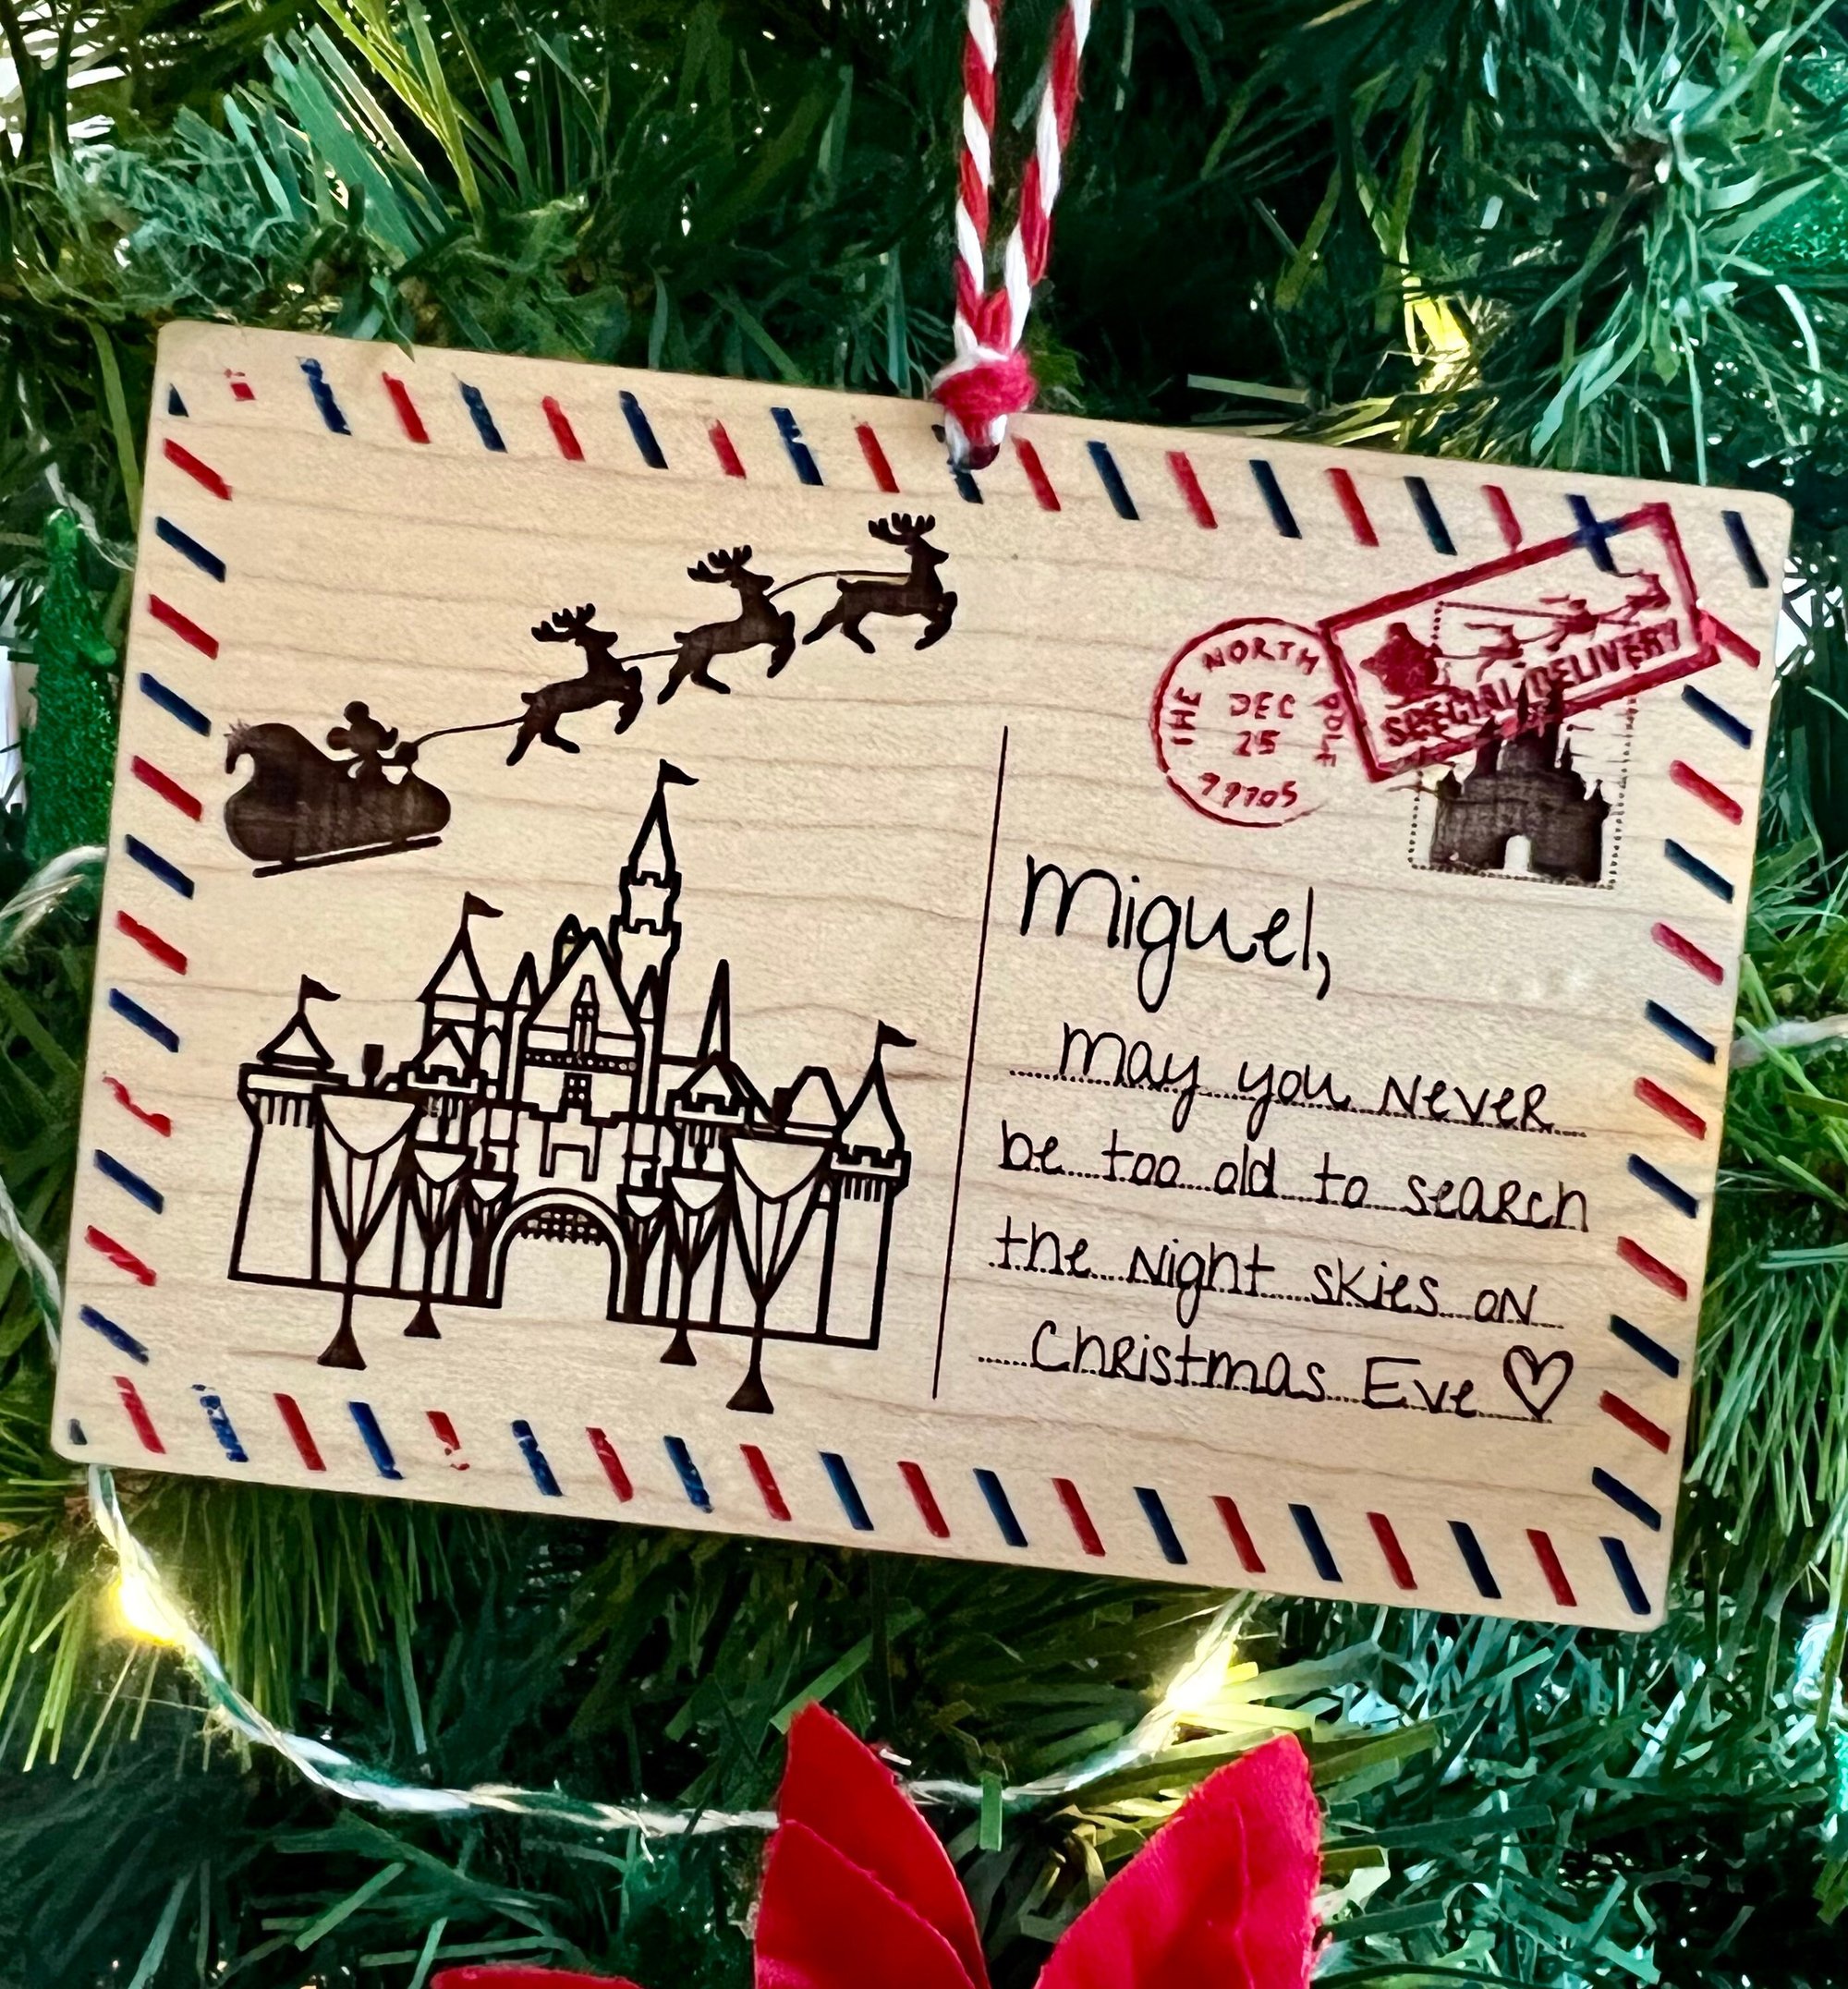 THE NORTH POLE
DEC
25
99705
SPECIAL DELIVERY
Miguel,
may you Never
be too old to search
the Night skies on
Christmas Eve